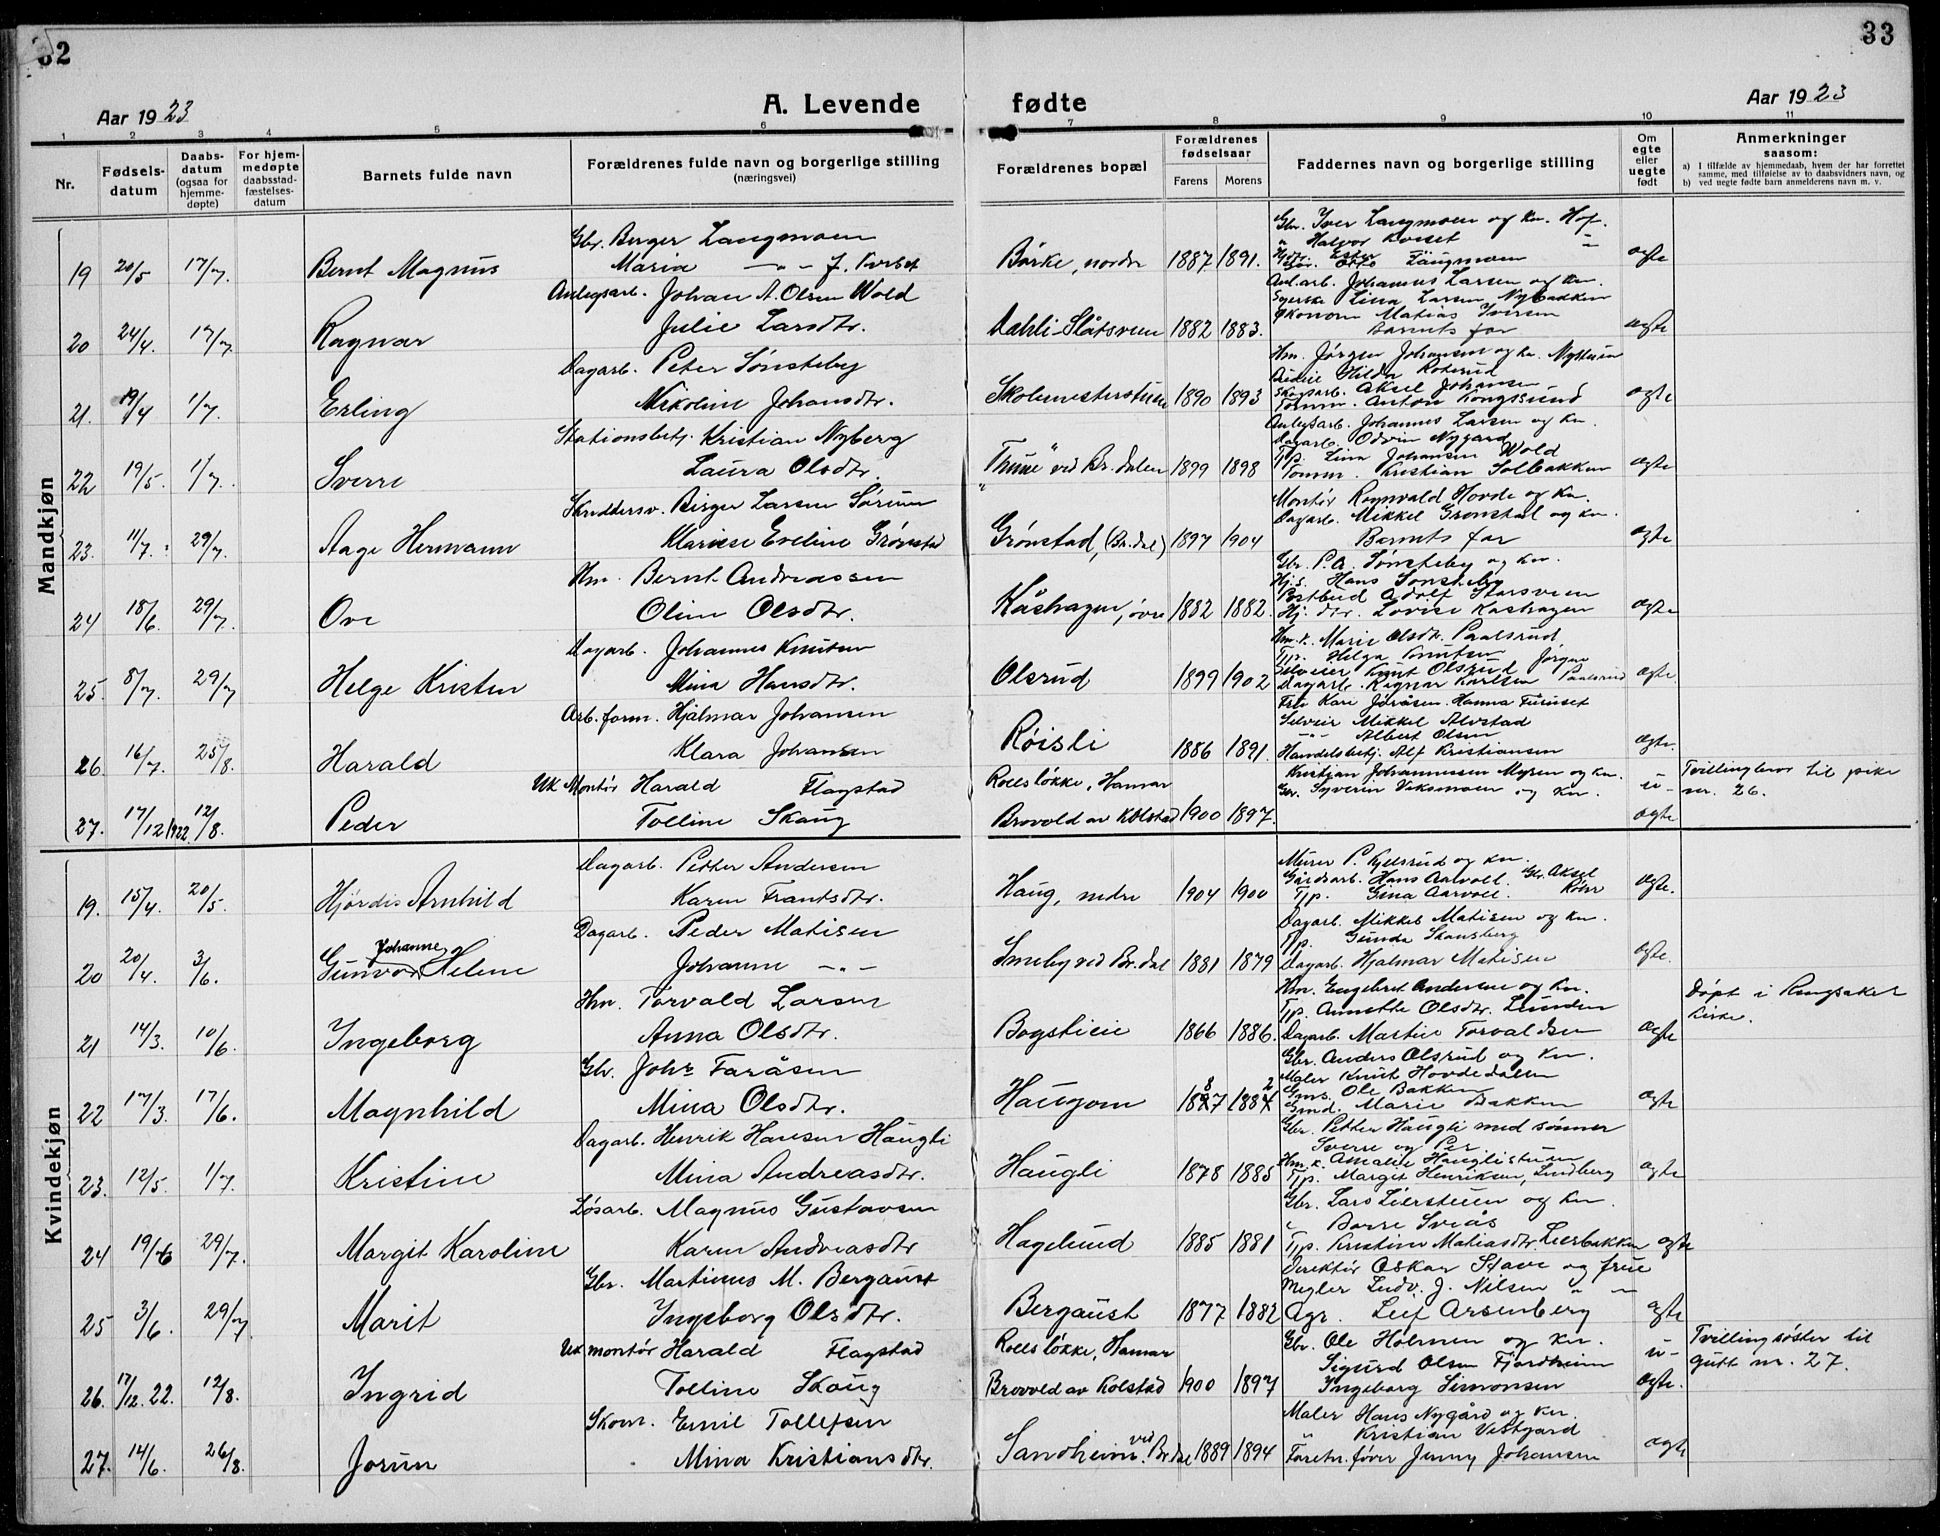 32
33
Aar 1923
A. Levende
fødte
Aar 1923
1 2 3 4 5 6 7 8 9 10 11
Nr.
Fødsels-datum
Daabs-datum (ogsaa for hjemme-døpte)
For hjem-medøpte daabsstad-fæstelses-datum
Barnets fulde navn
Forældrenes fulde navn og borgerlige stilling (næringsvei)
Forældrenes bopæl
Forældrenes fødselsaar
Farens
Morens
Faddernes navn og borgerlige stilling
Om egte eller uegte født
Anmerkninger saasom:
a) I tilfælde av hjemmedaab, hvem der har forrettet samme, med tilføielse av to daabsvidners navn, og
b) ved uegte fødte barn anmelderens navn m. v.
Mandkjøn
Gbr. Berger Langmoen
Gbr. Iver Langmoen og kn. Hof.
" Halvor Kveset
19 20/5 17/7. Bernt Magnus Maria -"- f. Kveset Børke, nordre 1887 1891. Otto Langmoen egte
Anlegsarb. Johan A. Olsen Wold
Anl.arb. Johannes Larsen og kn.
Syerske Lina Larsen Nybakken
Økonom Matias Iversen
20 24/4. 17/7. Ragnar Julie Larsdtr. Dahli-Slåtsveen 1882 1883. Barnets far egte
Dagarb. Peter Sønsteby
Hm. Jørgen Johansen og kn. Nystuen
Hilda Roterud
Skogsarb. Aksel Johansen
21. 19/4 1/7. Erling Nikoline Johansdtr. Skolemesterstuen 1890 1893 Tømm. Anton Kongssund egte
Stationsbetj. Kristian Nyberg
Anlegsarb. Johannes Larsen og kn.
Dagarb. Odvin Nygard
Tjp. Lina Johansen Wold
22 19/5. 1/7. Sverre Laura Olsdtr. "Thune" ved Br.dalen 1899 1898 Tømm. Kristian Solbakken egte
Skreddersv. Birger Larsen Sørum
Montør Ragnvald Hovde og kn.
Dagarb. Mikkel Grønstad og kn.
23. 11/7. 29/7. Aage Hermann Klarise Eveline Grønstad Grønstad, (Br.dal) 1897 1904 Barnets far egte
Hm. Bernt Andreassen
Gbr. P.A. Sønsteby og kn.
Hj.s. Hans Sønsteby
Postbud Adolf Storsveen
24 18/6. 29/7. Ove Oline Olsdtr. Kåshagen, øvre 1882 1882. Hj. dtr. Lovise Kashagen egte
Dagarb. Johannes Knutsen
Hm.k. Marie Olsdtr. Paalsrud
Tjp. Helga Knutsen
Selveier Knut Olsrud Jørgen
25. 8/7. 29/7 Helge Kristen Mina Hansdtr. Olsrud 1899 1902 Dagarb. Ragnar Karlsen Paalsrud egte
Arb.form. Hjalmar Johansen
Frk Kari Jøråsen. Hanna Furuset
Selveir Mikkel Alvstad
-"- Albert Olsen
26. 16/7. 25/8. Harald Klara Johansen Røisli 1886 1891. Handelsbetj. Alf Kristiansen egte.
Uk Montør Harald Flagstad Roelsløkke, Hamar Kristian Johannessen Mysen og kn. u- Tvillingbror til pike
27. 17/12 1922. 12/8. Peder Tolline Skaug Brovold av Kolstad 1900 1897. Gbr. Syverin Viksmoen og kn. egte nr. 26.
Kvindekjøn
Dagarb. Petter Andersen
Murer P. Kjelsrud og kn.
Gårdsarb. Hans Aarvoll. Gbr. Aksel
19. 15/4. 20/5. Hjørdis Arnhild Karen Frantsdtr. Haug, nedre 1904 1900 Tjp. Gina Aarvoll. Røhr egte.
Dagarb. Peder Matisen
Dagarb. Mikkel Matisen og kn.
Tjp. Gunda Skansberg
20 20/4. 3/6. Gunvor Johanne Helene Johanne -"- Smeby ved Br.dal 1881 1879 Dagarb. Hjalmar Matisen egte.
Hm. Torvald Larsen
Hm. Engebret Andersen og kn.
Tjp. Annette Olsdtr. Lunden
Døpt i Ringsaker
21 14/3. 10/6. Ingeborg Anna Olsdtr. Bogstieie 1866 1886. Dagarb. Martin Torvaldsen egte kirke.
Gbr. Johs Faråsen
Gbr. Anders Olsrud og kn.
Maler Knut Hovdedalen
Gms. Ole Bakken
22 17/3. 17/6. Magnhild Mina Olsdtr. Haugom 1887 1882 Gmd. Marie Bakken egte
Dagarb. Henrik Hansen Haugli
Gbr. Petter Haugli med sønner
Sverre og Per
Hm.k. Amalie Hauglistuen
23. 12/5. 1/7. Kristine Mina Andreasdtr. Haugli 1878 1885 Tjp. Margit Henriksen, Lundberg egte
Løsarb. Magnus Gustavsen
Gbr. Lars Lierstuen og kn.
" Borre Sviås
24 19/6 29/7. Margit Karoline Karen Andreasdtr Hagelund 1885 1881 Tjp. Kristine Matiasdtr. Lierbakken egte
Gbr. Martinus M. Bergaust
Direktør Oskar Stave og frue
Megler Ludv. J. Nilsen " -
25 3/6. 29/7 Marit Ingeborg Olsdtr. Bergaust 1877 1882 Agr. Leif Arsenberg egte
Uk montør Harald Flagstad Roelsløkke, Hamar Gbr. Ole Holmen og kn. u- Tvillingsøster til
Sigurd Olsen Fjordheim gutt nr. 27.
26. 17/12. 22. 12/8. Ingrid Tolline Skaug Brovold av Kolstad 1900 1897 Ingeborg Simonsen egte.
Skom. Emil Tollefsen
Maler Hans Nygård og kn.
" Kristian Vestgard
27. 14/6. 26/8. Jorun Mina Kristiansdtr. Sandheim ved Br.dal 1889 1894 Foretn.fører Jenny Johansen egte